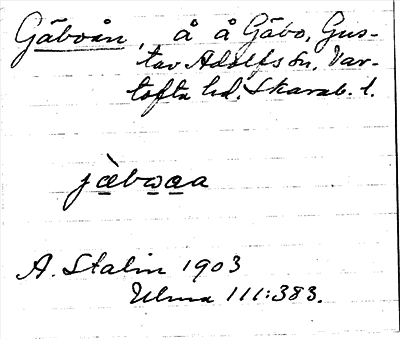 Gäboån, å å Gäbo, Gus-
tav Adolfs sn. Var-
tofta hd. Skarab. l.
jàbwaa
A. Stalin 1903
Ulma 111:383.